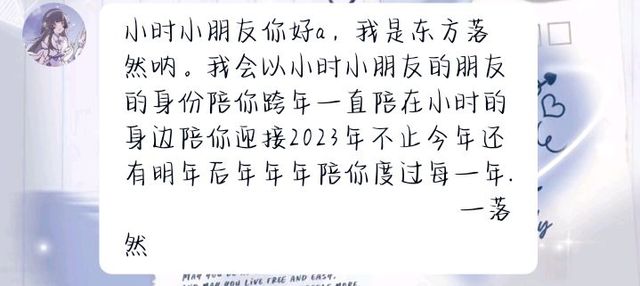 小时小朋友你好a，我是东方落
然呐。我会以小时小朋友的朋友
的身份陪你跨年一直陪在小时的
身边陪你迎接2023年不止今年还
有明年后年年年陪你度过每一年.
一落
然
LIVE FREE AND EASY.